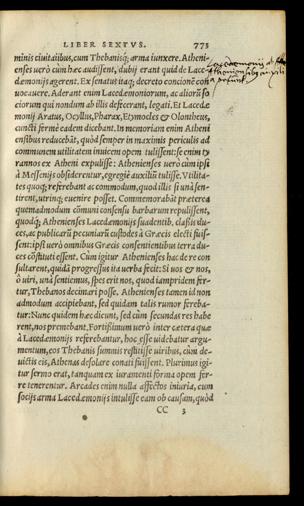 LIBER SEXTVS. 775
minis ciuitatibus, cum Thebanisq; arma iunxere. Atheni-
enses uerò cùm hæc audissent, dubij erant quid de Lace-
dæmonijs agerent. Ex senatus itaq; decreto concionem con
uocauere. Aderant enim Lacedæmoniorum, ac aliorū so
ciorum qui nondum ab illis defecerant, legati. Et Lacedæ
monij Aratus, Ocyllus, Pharax, Etymocles & Olontheus,
cuncti fermè eadem dicebant. In memoriam enim Atheni
ensibus reducebāt, quòd semper in maximis periculis ad
communem utilitatem inuicem opem tulissent: se enim ty
rannos ex Atheni expulisse: Athenienses uerò cùm ipsi
à Messenijs obsiderentur, egregiè auxiliū tulisse. Vtilita-
tes quoq; referebant ac commodum, quod illis si unà sen-
tirent, utrinq; euenire posset. Commemorabāt præterea
quemadmodum cōmuni consensu barbarum repulissent,
quodq; Athenienses Lacedæmonijs suadentib, classis du-
ces, ac publicarū pecuniarū custodes à Græcis electi fuis-
sent: ipsi uerò omnibus Græcis consentientibus terra du-
ces cōstituti essent. Cùm igitur Athenienses hac de re con
sultarent, quidā progressus ita uerba fecit: Si uos & nos,
ô uiri, unà sentiemus, spes erit nos, quod iampridem fer-
tur, Thebanos decimari posse. Athenienses tamen id non
admodum accipiebant, sed quidam talis rumor ferebā-
tur: Nunc quidem hæc dicunt, sed cùm secundas res habe
rent, nos premebant. Fortissimum uerò inter cætera quæ
à Lacedæmonijs referebantur, hoc esse uidebatur argu-
mentum, eos Thebanis summis restitisse uiribus, cùm de-
uictis eis, Athenas desolare conati fuissent. Plurimus igi
tur sermo erat, tanquam ex iuramenti forma opem fer-
re tenerentur. Arcades enim nulla affectos iniuria, cum
socijs arma Lacedæmonijs intulisse eam ob causam, quòd
CC 3
Lacedæmonij ab
Atheniensibg auxili
a petunt